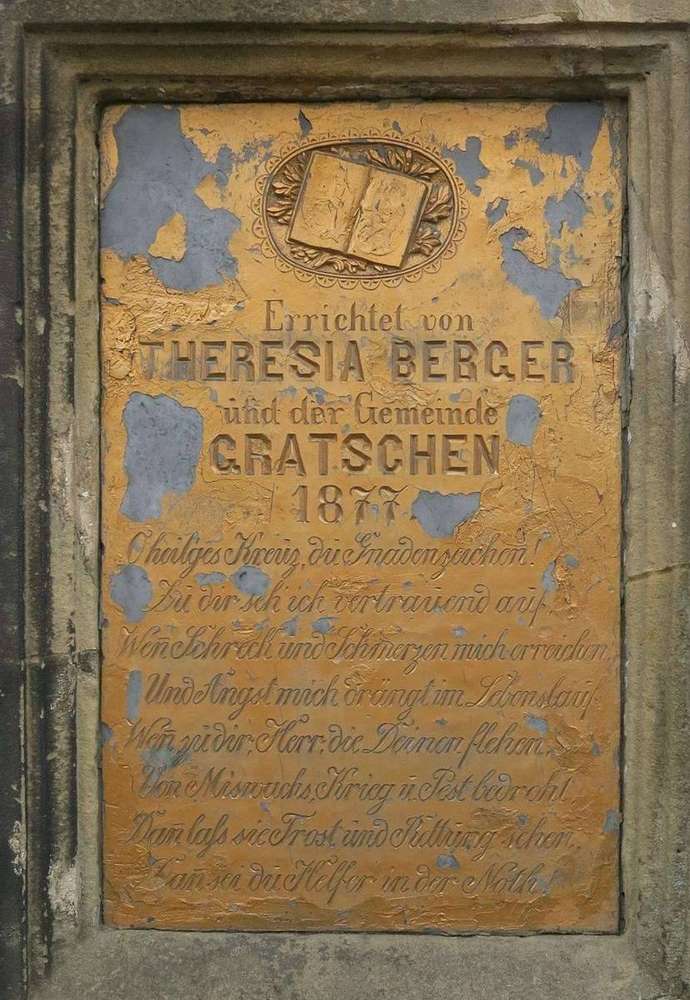 Errichtet von
THERESIA BERGER
und der Gemeinde
GRATSCHEN
1877.
O heilges Kreuz, du Gnadenzeichen!
Zu dir seh ich vertrauend auf,
Wen̄ Schreck und Schmerzen mich erreichen,
Und Angst mich drängt im Lebenslauf.
Wen̄ zu dir, Herr, die Deinen flehen,
Von Miswachs, Krieg u Pest bedroht,
Dan laß sie Trost und Rettung sehen,
Dan sei du Helfer in der Noth!